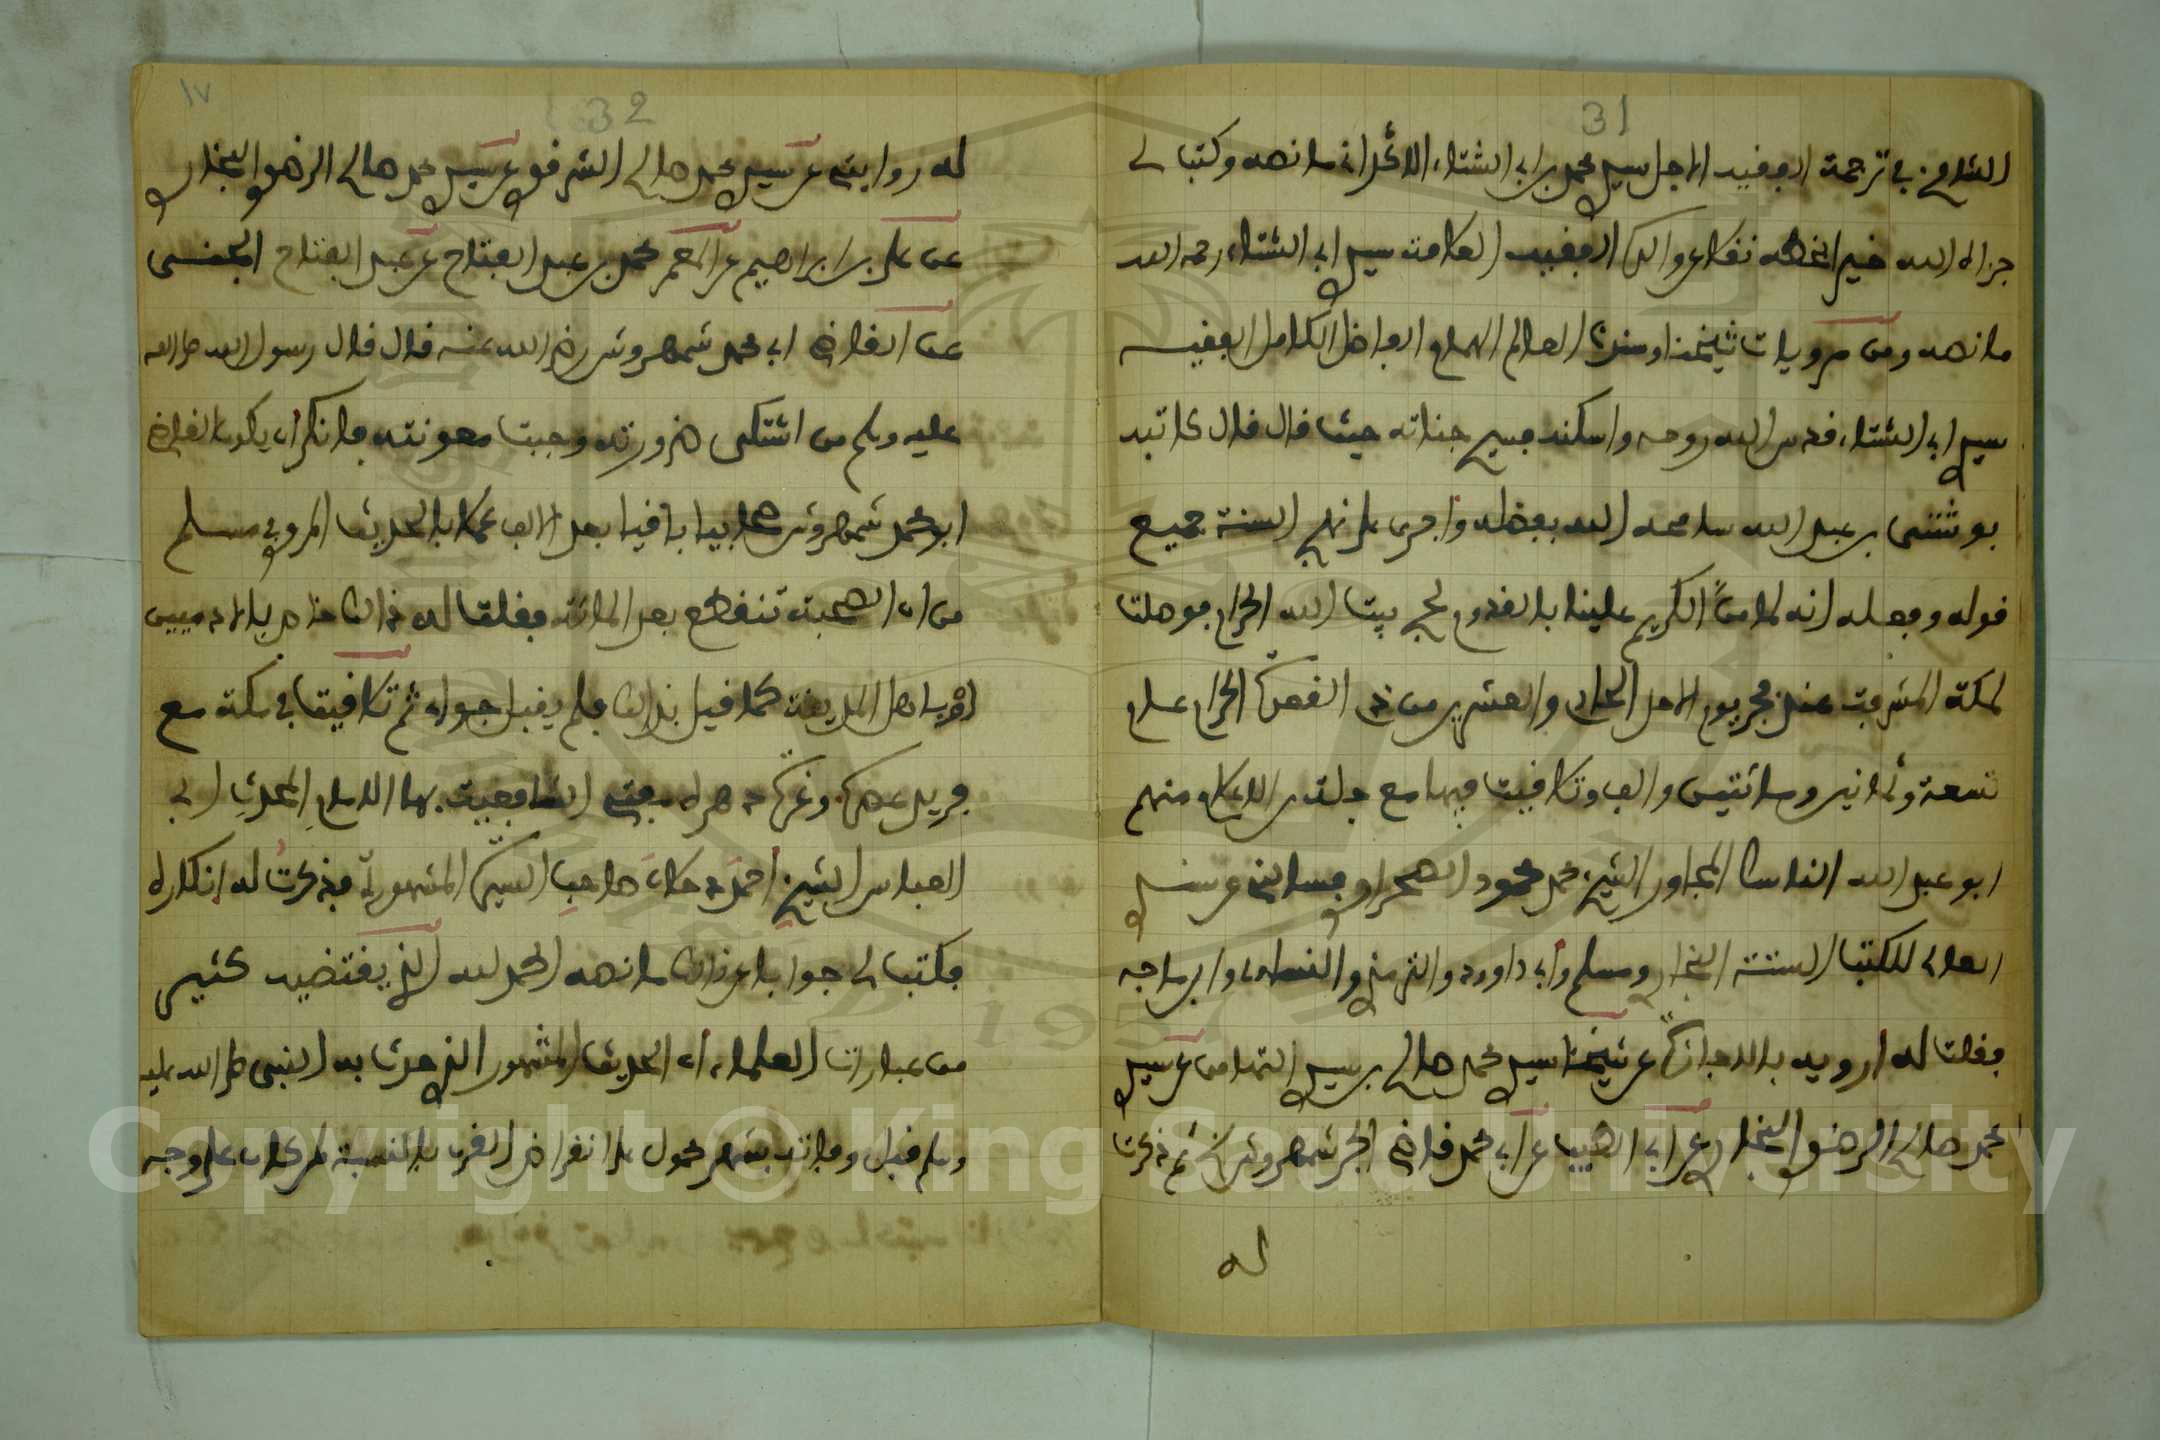 31
الشامخ في ترجمة الفقيد الاجل سيدي محمد بن ابي الشتاء ما نصه وكتب لي
جزاه الله خيرا بخطه نفلا عن والدي الفقيد العلامة سيدي ابي الشتاء رحمه الله
ما نصه ومن مرويات شيخنا العالم الهمام الفاضل الكامل الفقيه
سيدي ابي الشتاء قدس الله روحه واسكنه فسيح جناته حيث قال قال كاتبه
بوشتى بن عبد الله سامحه الله بفضله واجرى على نهج السنة جميع
قوله وفعله انه لما منّ الكريم علينا بالقدوم لحج بيت الله الحرام فوصلت
لمكة المشرفة عند فجر يوم الاحد الحادي والعشرين من ذي القعدة الحرام عام
تسعة وثمانين ومائتين والف وتلاقيت فيها مع جلة من الاعلام منهم
ابو عبد الله الناسك المجاور الشيخ محمد محمود الصحراوي فسالني عن سندي
العالي للكتب الستة البخاري ومسلم وابي داوود والترمذي والنساءي وابن ماجه
فقلت له ارويه بالاجازة عن شيخنا سيدي محمد صالح بن سيدي التهامي عن سيدي
محمد صالح الرضوي البخاري عن ابي محمد قاضي الجن شمهروش ثم ذكرت
له
32
١٧
له روايتي عن سيدي محمد صالح الشرفي عن سيدي محمد صالح الرضوي البخاري
عن علي بن ابراهيم عن المعمر محمد بن عبد الفتاح عن عبد الفتاح الجنسي
عن القاضي ابي محمد شمهروش رضي الله عنه قال قال رسول الله صلى الله
عليه وسلم من اشتكى ضرورته وجبت معونته فانكر ان يكون القاضي
ابو محمد شمهروش صحابيا باقيا بعد الالف عملا بالحديث المروي في مسلم
من ان الصحبة تنقطع بعد المائة فقلت له ذلك خاص بالادميين
او باهل المدينة كما قيل بذلك فلم يقبل جوابي ثم تلاقيت في مكة مع
فريد عصره مفتي الشافعية بها الامام المحدث ابي
العباس الشيخ احمد دحلان صاحب السيرة المشهورة فذكرت له انكاره
فكتب لي جوابا عن ذلك ما نصه الحمد لله الذي يقتضيه كثير
من عبارات العلماء ان الحديث المشهور الذي حدث به النبي صلى الله عليه
وسلم قبل وفاته بشهر محمول على انقراض القرن بالنسبة لمن كان على وجه